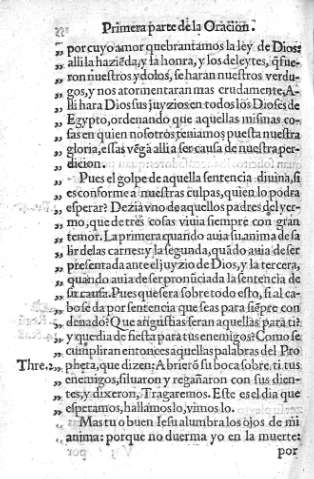 Primera parte de la Oracion.
por cuyo amor quebrantamos la ley de Dios:
„ alli la haziẽda, y la honra, y los deleytes, q̃ fue-
„ ron nuestros ydolos, se haran nuestros verdu-
„ gos, y nos atormentaran mas crudamente, A-
„ lli hara Dios sus juyzios en todos los Dioses de
„ Egypto, ordenando que aquellas mismas co-
„ sas en quien nosotros teniamos puesta nuestra
„ gloria, essas vẽgã alli a ser causa de nuestra per-
„ dicion.
„ Pues el golpe de aquella sentencia diuina, si
„ es conforme a nuestras culpas, quien lo podra
„ esperar? Dezia vno de aquellos padres del yer-
„ mo, que de tres cosas viuia siempre con gran
„ temor. La primera quando auia su anima de sa
„ lir de las carnes: y la segunda, quãdo auia de ser
„ presentada ante el juyzio de Dios, y la tercera,
„ quando auia de ser pronũciada la sentencia de
„ su causa. Pues que sera sobre todo esto, si al ca-
„ bo se da por sentencia que seas para siẽpre con
„ denado? Que angustias seran aquellas para ti?
„ y que dia de fiesta para tus enemigos? Como se
„ cumpliran entonces aquellas palabras del Pro
Thre. 2. „ pheta, que dizen: Abrierõ su boca sobre ti tus
„ enemigos, siluaron y regañaron con sus dien-
„ tes, y dixeron, Tragaremos. Este es el dia que
„ esperamos, hallamos lo, vimos lo.
„ Mas tu o buen Iesu alumbra los ojos de mi
„ anima: porque no duerma yo en la muerte:
por